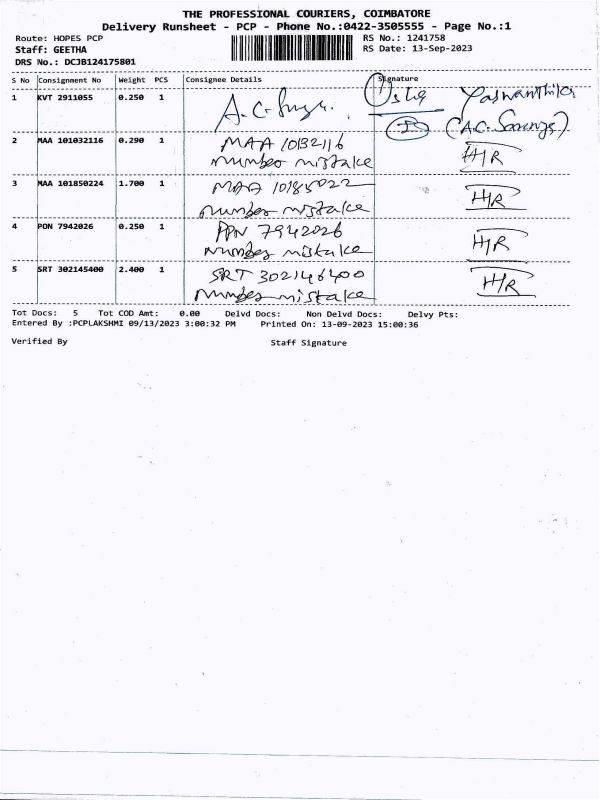 THE PROFESSIONAL COURIERS, COIMBATORE
Delivery Runsheet - PCP - Phone No.:0422-3505555 - Page No.:1
Route: HOPES PCP
Staff: GEETHA
DRS No.: DCJB124175801
RS No.: 1241758
RS Date: 13-Sep-2023
S No Consignment No Weight PCS Consignee Details Signature
1 KVT 2911055 0.250 1 Usha
(A.C. Savings)
2 MAA 101032116 0.290 1 MAA 10132116 H/R
number mistake
3 MAA 101850224 1.700 1 MAA 10185022 H/R
number mistake
4 PON 7942026 0.250 1 PPN 7942026 H/R
number mistake
5 SRT 302145400 2.400 1 SRT 302146400 H/R
number mistake
Tot Docs: 5 Tot COD Amt: 0.00 Delvd Docs: Non Delvd Docs: Delvy Pts:
Entered By :PCPLAKSHMI 09/13/2023 3:00:32 PM Printed On: 13-09-2023 15:00:36
Verified By Staff Signature